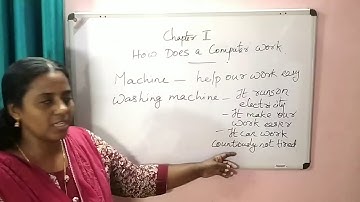 Chapter I
How Does a Computer Work
Machine – help our work easy
Washing machine – It runs on
electricity
– It make our
work easier
– It can work
Countiously not tired